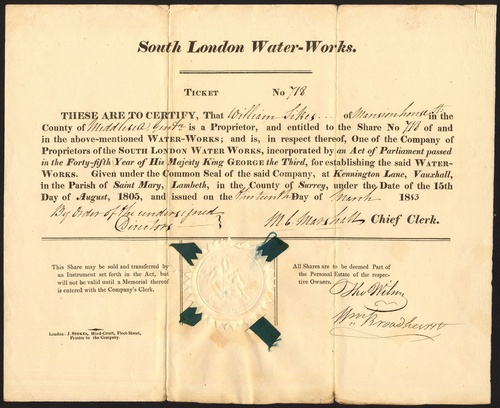 South London Water-Works.
TICKET No 718
THESE ARE TO CERTIFY, That William Sikes of Mansion house in the
County of Middlesex Gentn is a Proprietor, and entitled to the Share No 718 of and
in the above-mentioned WATER-WORKS; and is, in respect thereof, One of the Company of
Proprietors of the SOUTH LONDON WATER WORKS, incorporated by an Act of Parliament passed
in the Forty-fifth Year of His Majesty King GEORGE the Third, for establishing the said WATER-
WORKS. Given under the Common Seal of the said Company, at Kennington Lane, Vauxhall,
in the Parish of Saint Mary, Lambeth, in the County of Surrey, under the Date of the 15th
Day of August, 1805, and issued on the Thirteenth Day of March
By Order of the undersigned
Directors
M. C. Marshall Chief Clerk.
This Share may be sold and transferred by
an Instrument set forth in the Act, but
will not be valid until a Memorial thereof
is entered with the Company's Clerk.
All Shares are to be deemed Part of
the Personal Estate of the respec-
tive Owners.
London: J. STOKES, Hind-Court, Fleet-Street,
Printer to the Company.
Wm Broadhurst